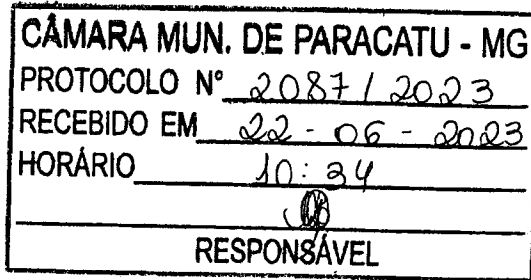 CÂMARA MUN. DE PARACATU - MG
PROTOCOLO Nº 2087 / 2023
RECEBIDO EM 22 - 06 - 2023
HORÁRIO 10:34
RESPONSÁVEL